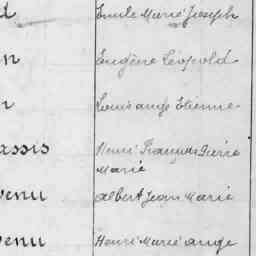 d Emile Marie Joseph
n Eugène Léopold
n Louis ange Etienne
assis Henri François Pierre
Marie
venu albert Jean Marie
venu Henri Marie ange